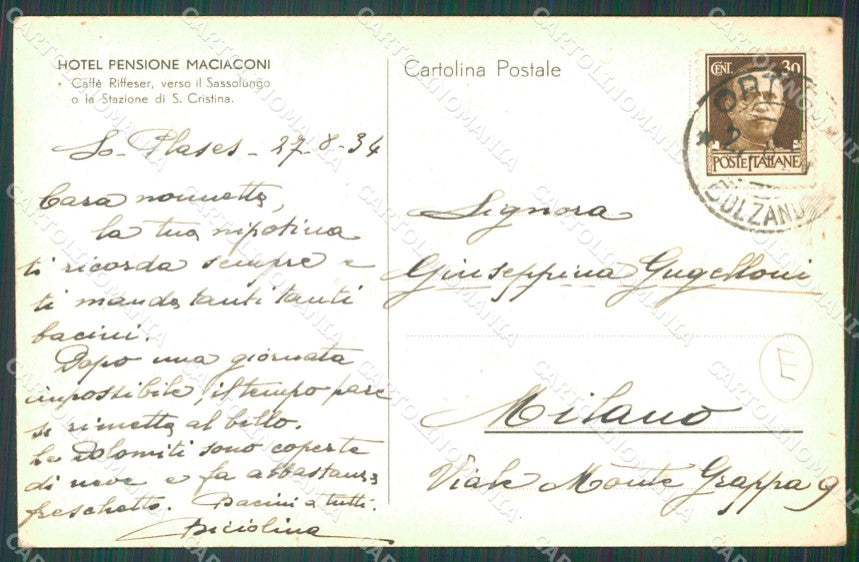 HOTEL PENSIONE MACIACONI
• Caffè Riffeser, verso il Sassolungo
o la Stazione di S. Cristina.
Cartolina Postale
CENT. 30
POSTE ITALIANE
ORTI
BOLZANO
Plases - 27-8-34
Cara nonnetta,
la tua nipotina
ti ricorda sempre e
ti manda tanti tanti
bacini.
Dopo una giornata
impossibile, il tempo pare
si rimetta al bello.
Le Dolomiti sono coperte
di neve e fa abbastanza
freschetto. Bacini a tutti.
Signora
Giuseppina Gugelloni
Milano
Viale Monte Grappa 9
E
CARTOLINOMANIA